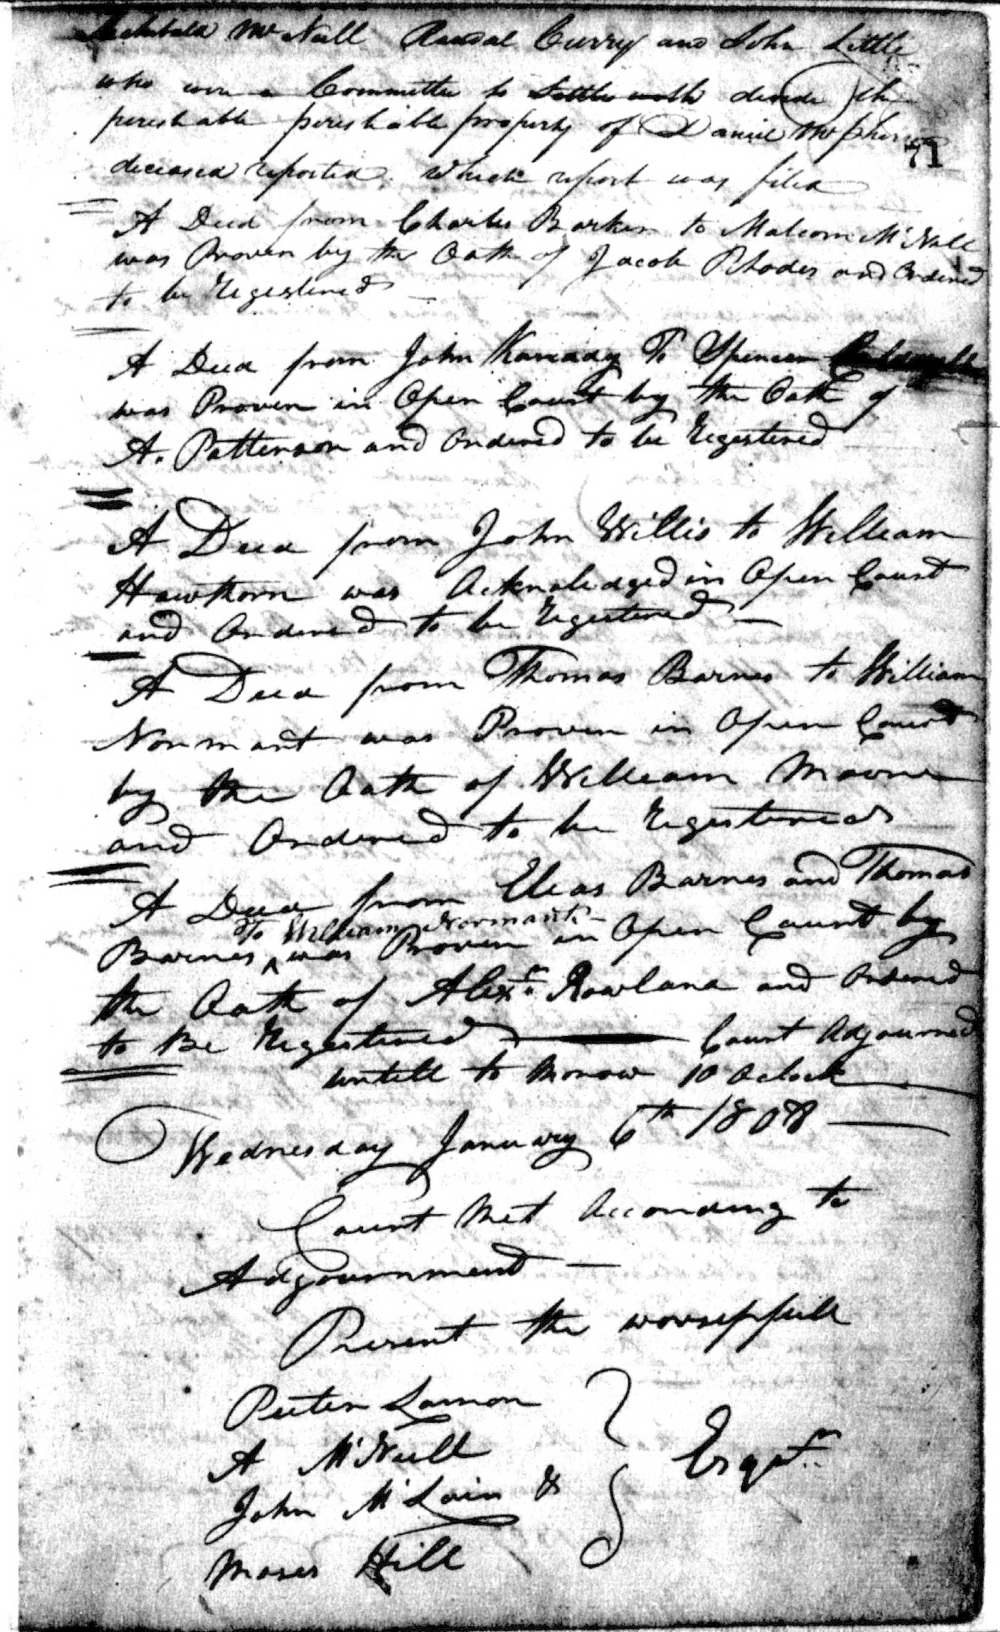 Archibald McNeill Randal Curry and John Little
who were a Committee to Settle with devide the
perishable perishable property of Daniel McPherson
71
deceased reported. which report was filed
A Deed from Charles Barker to Malcom McNeill
was Proven by the Oath of Jacob Rhodes and Ordered
to be Regestered
A Deed from John Kanaday To Spencer
was Proven in Open Court by the Oath of
A. Patterson and Ordered to be Regestered
A Deed from John Willis to William
Hawthorn was Acknoledged in Open Court
and Ordered to be Regestered
A Deed from Thomas Barnes to William
Normant was Proven in Open Court
by the Oath of William Moore
and Ordered to be Regestered
A Deed from Eleas Barnes and Thomas
To William Normant
Barnes ^ was Proven in Open Court by
the Oath of Alexr. Rowland and Ordered
to Be Regestered Court Adjourned
untill to Morrow 10 Oclock
Wednesday January 6th 1808
Court Met According to
Adgournment
Present the worsepfull
Peeter Lamon
A McNeill
John McLain &
Moses Hill
Esqrs.